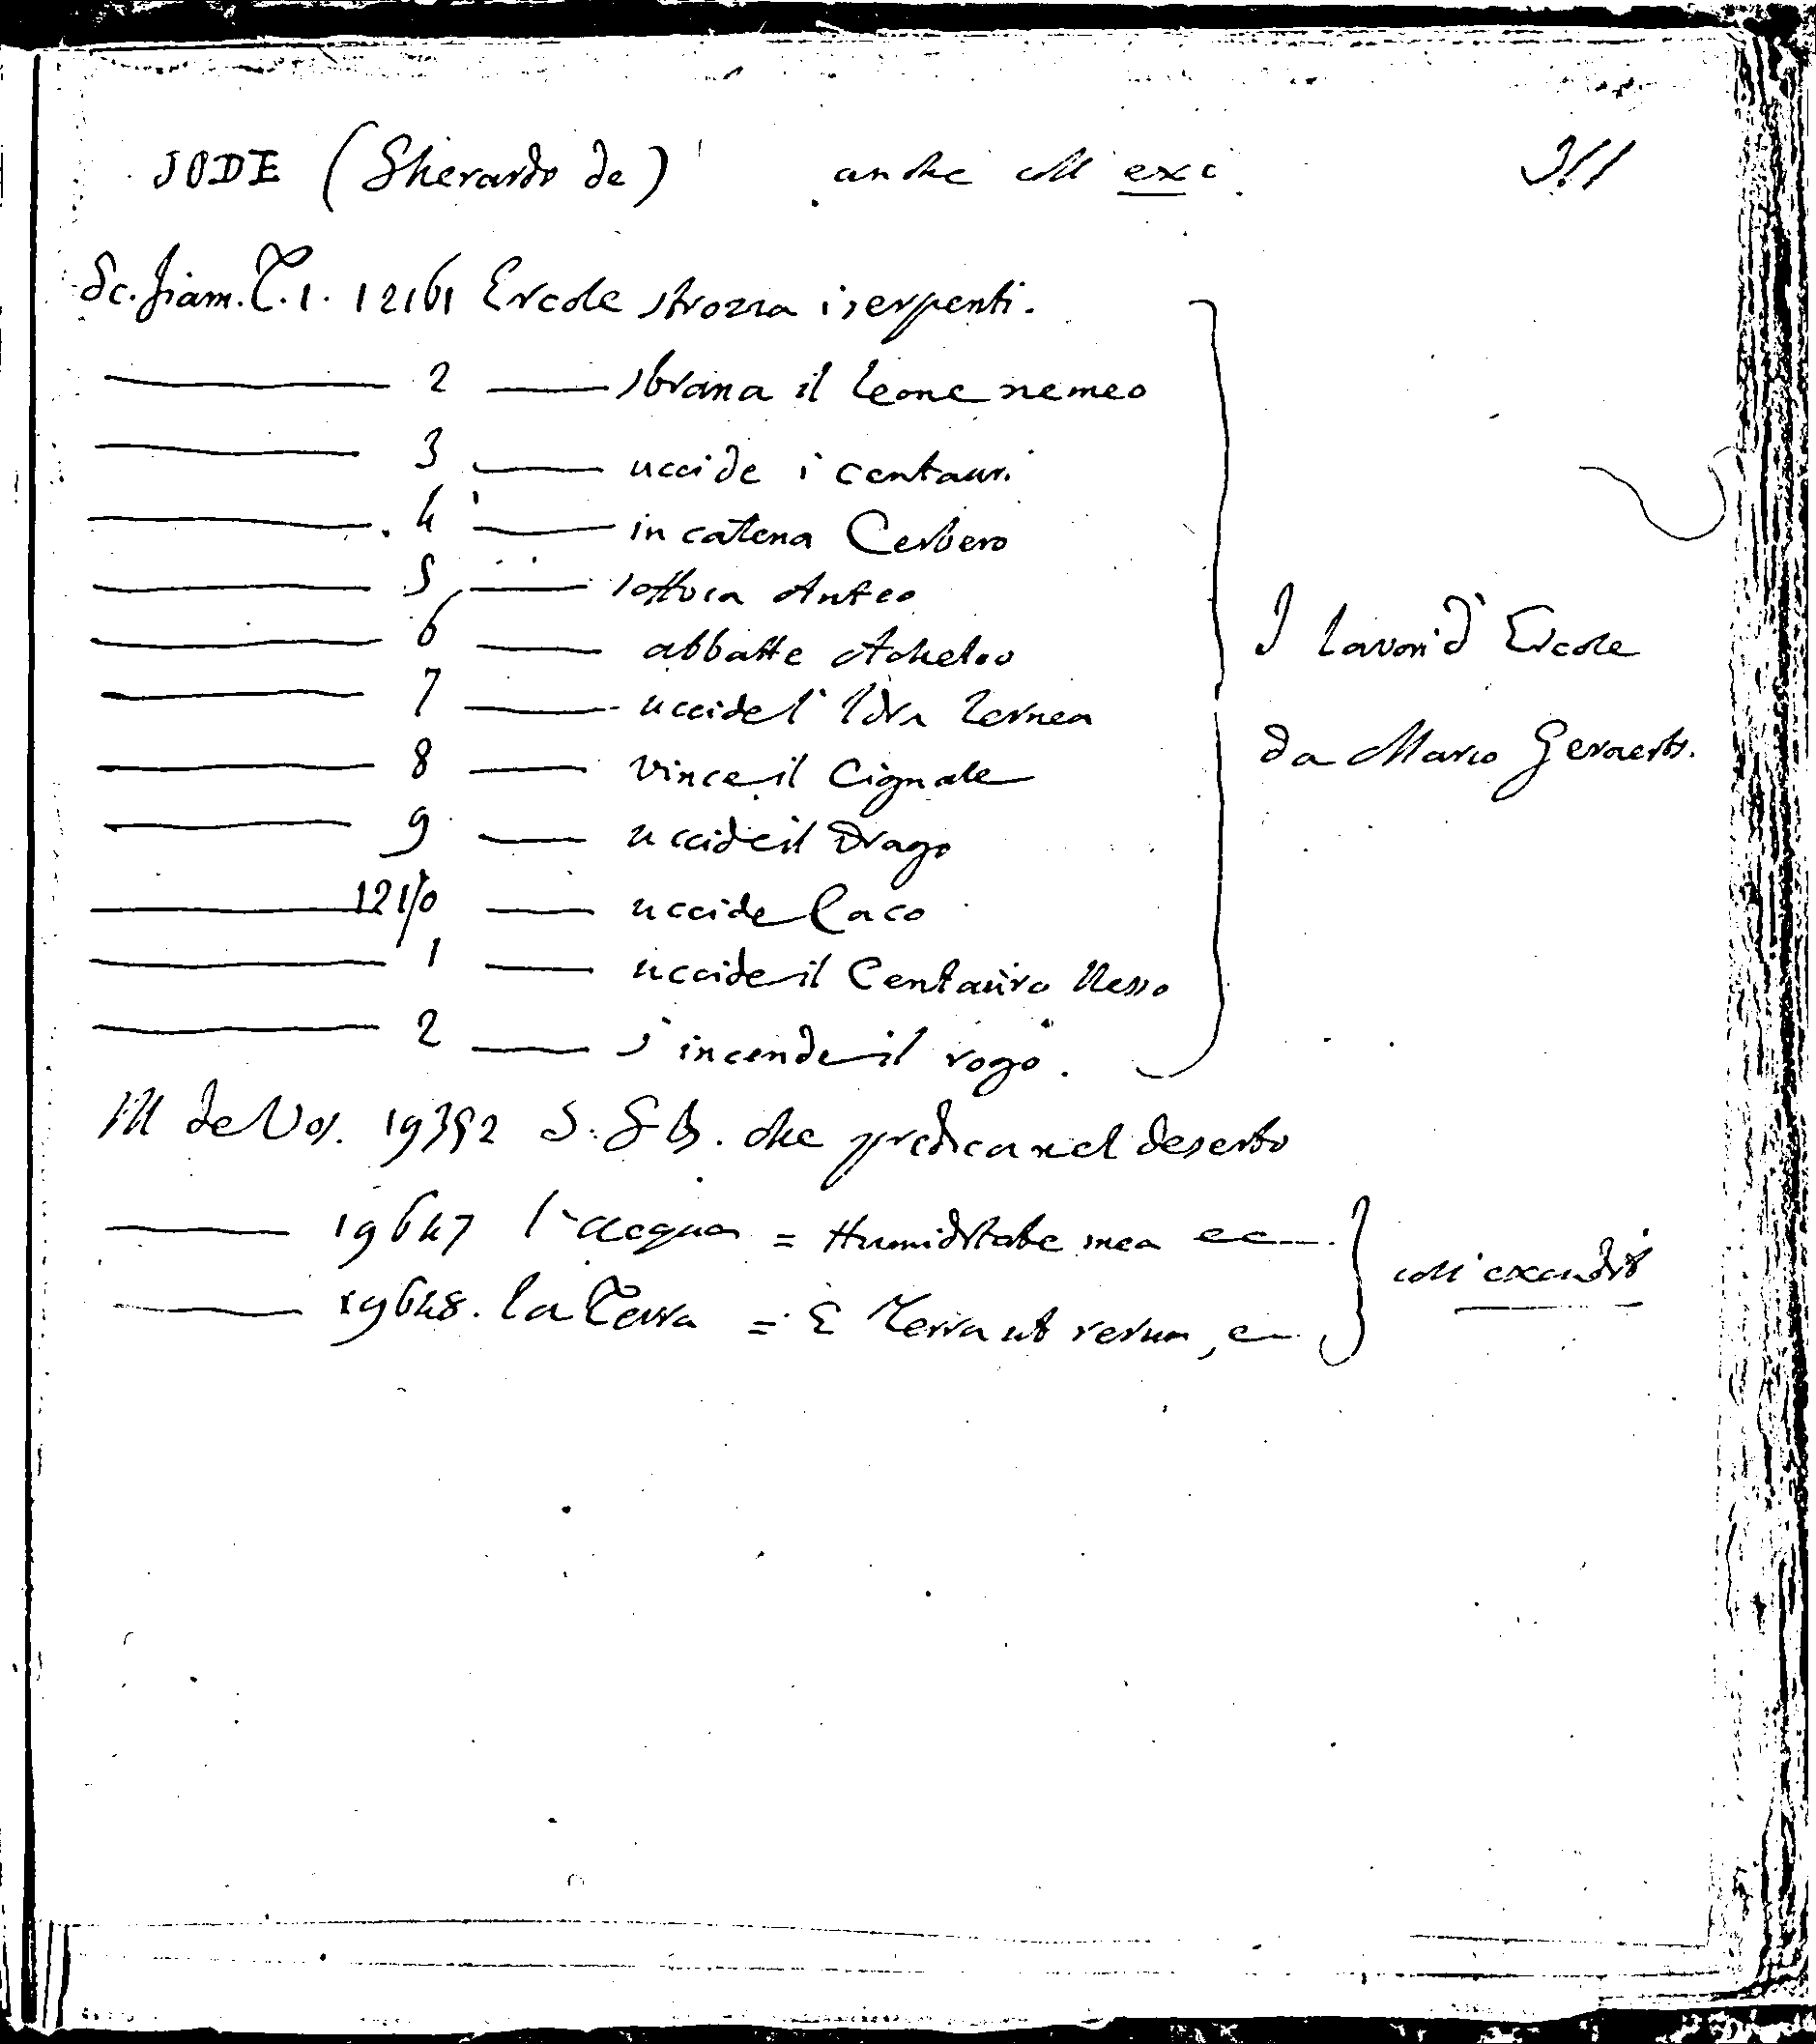 JODE (Gherardo de) anche coll' exc. 311
Sc. fiam. T. 1. 12161 Ercole strozza i serpenti.
——— 2 —— sbrana il leone nemeo
——— 3 —— uccide i centauri
——— 4 —— incatena Cerbero
——— 5 —— soffoca Anteo
——— 6 —— abbatte Acheloo
I lavori d' Ercole
——— 7 —— uccide l' Idra lernea
da Marco Geraerts.
——— 8 —— vince il Cignale
——— 9 —— uccide il Drago
——— 12170 —— uccide Caco
——— 1 —— uccide il Centauro Nesso
——— 2 —— s' incende il rogo.
M de Vos. 19392 S. G B. che predica nel deserto
——— 19647 l' acqua = Humiditate mea ec
coll' excudit
——— 19648. la Terra = E Terra ut rerum, ec